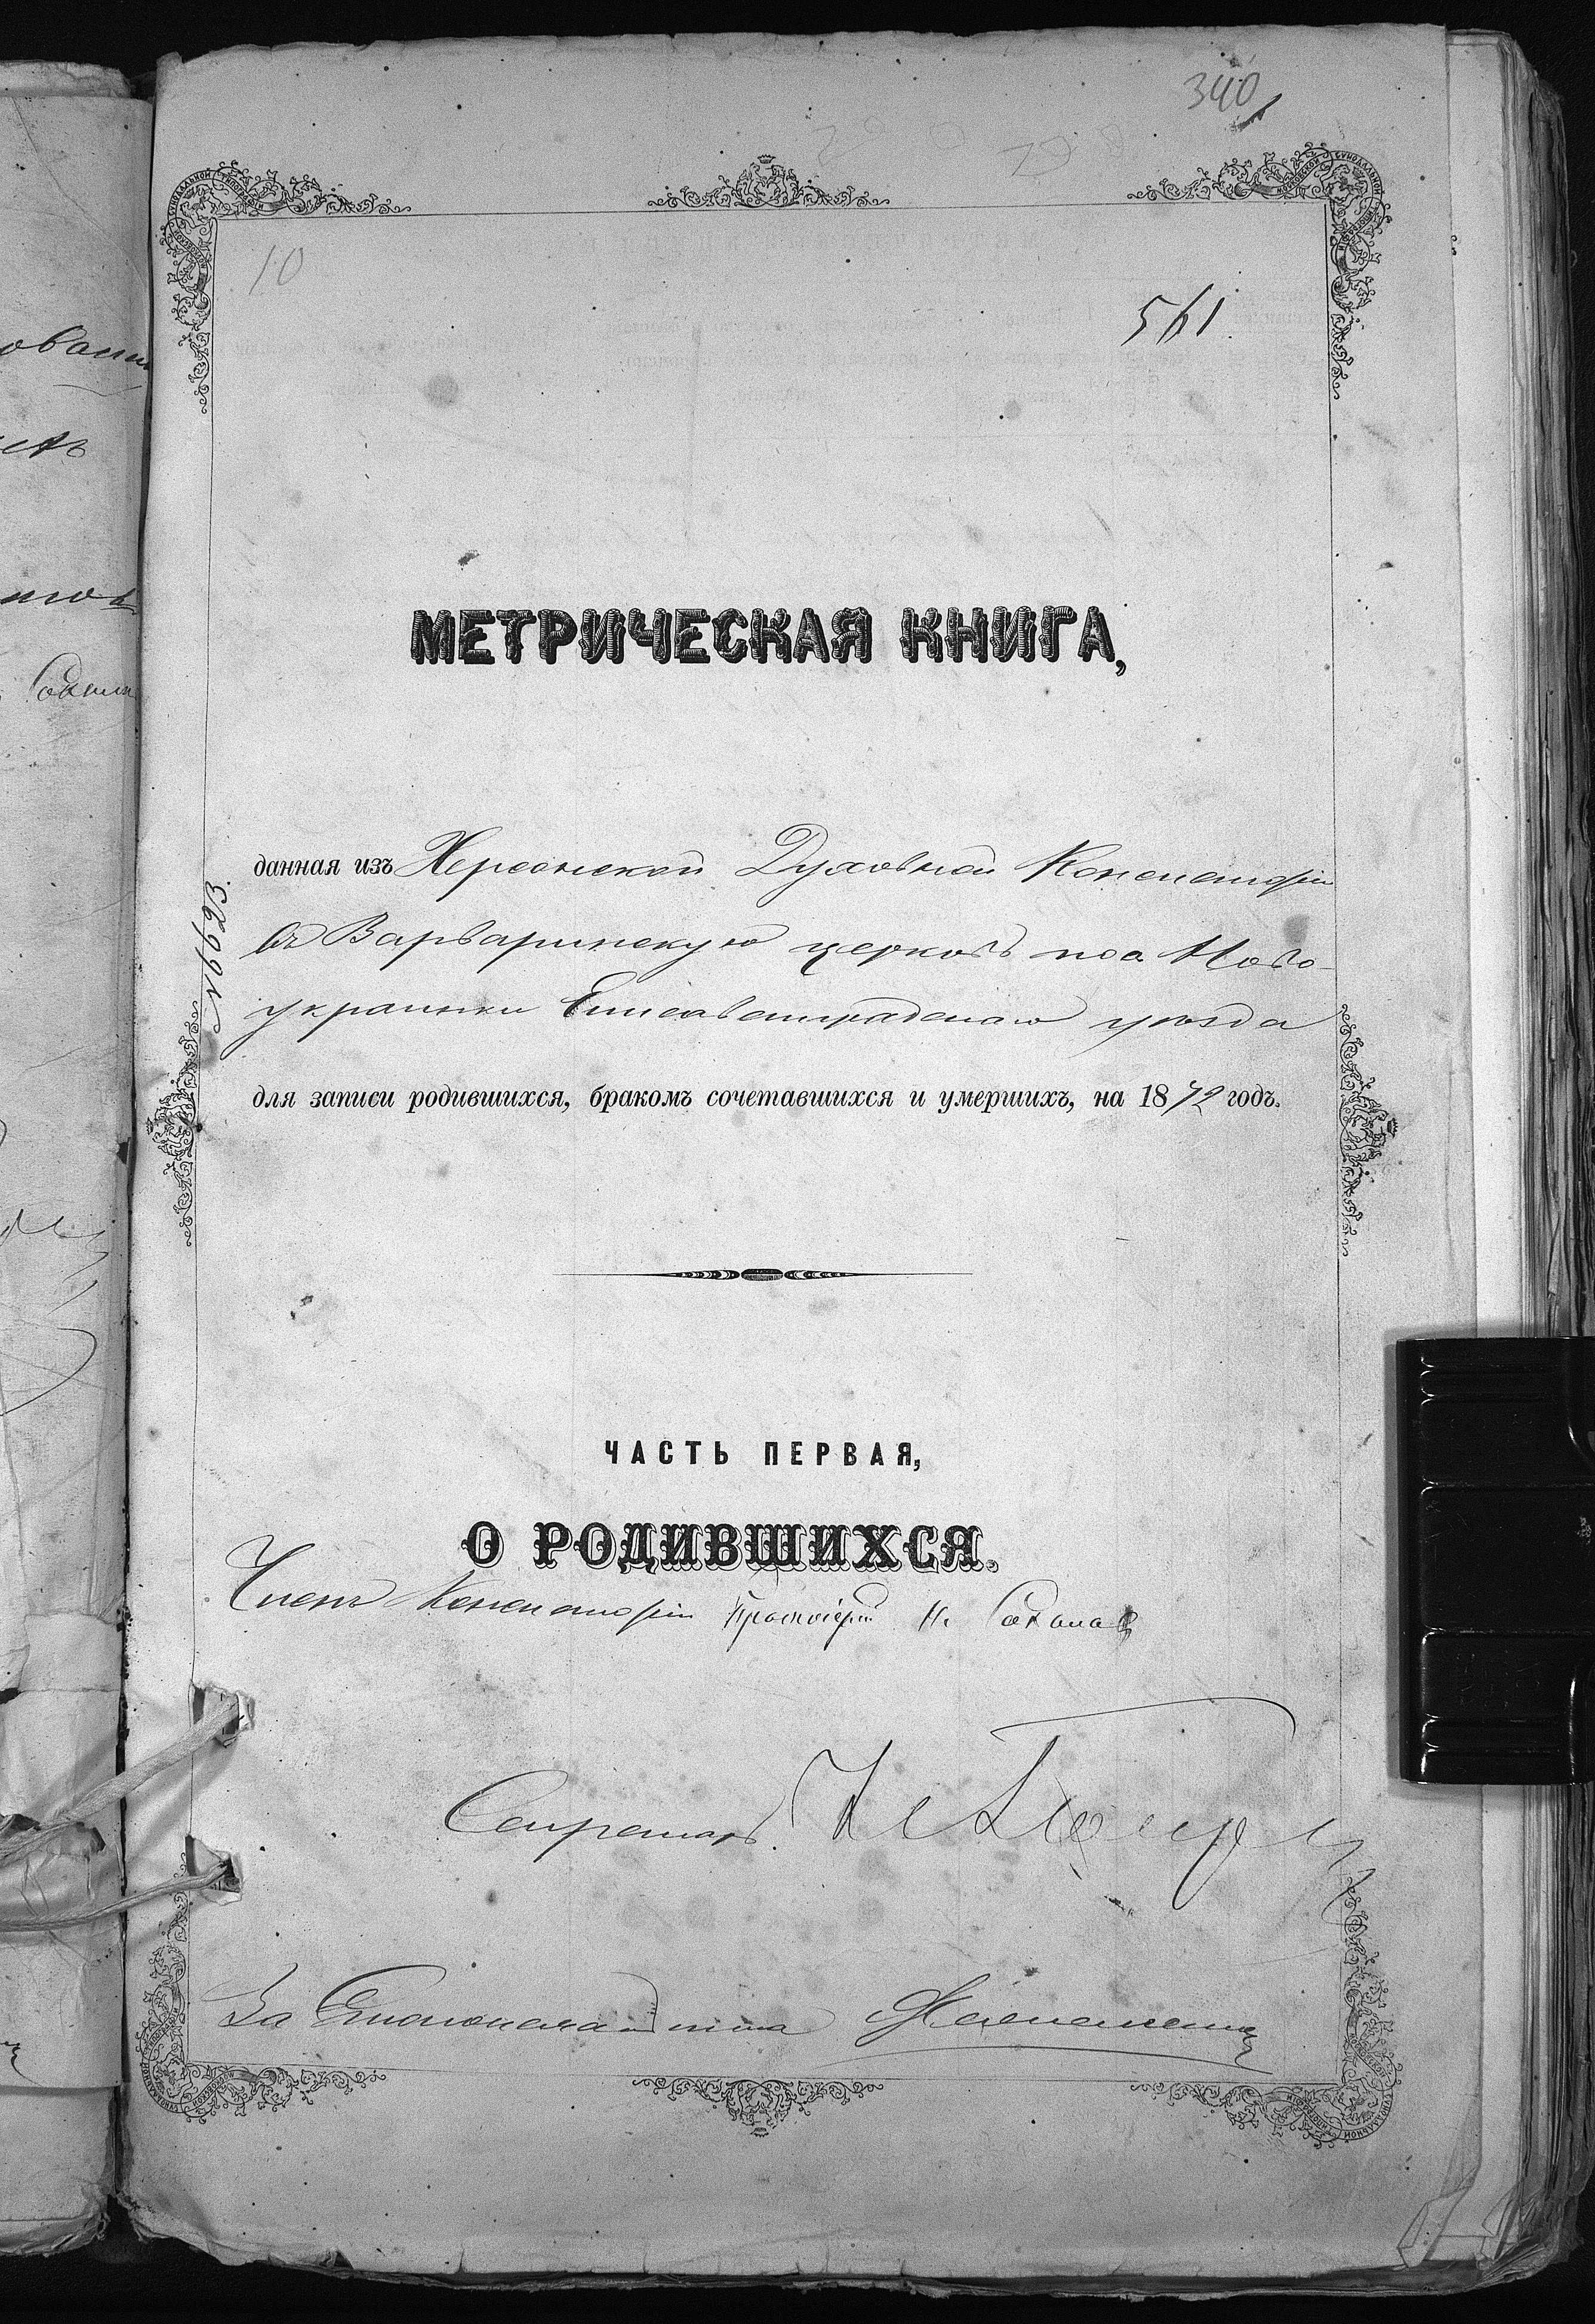 340
10
561.
МЕТРИЧЕСКАЯ КНИГА,
данная изъ Херсонской Духовной Консисторіи
въ Варваринскую церковь пос. Ново-
украинки Елисаветградскаго уѣзда
№ 6623.
для записи родившихся, бракомъ сочетавшихся и умершихъ, на 1872 годъ.
ЧАСТЬ ПЕРВАЯ,
О РОДИВШИХСЯ.
Членъ Консисторіи Протоіерей Н. Соколовъ
Секретарь
За Столоначальника